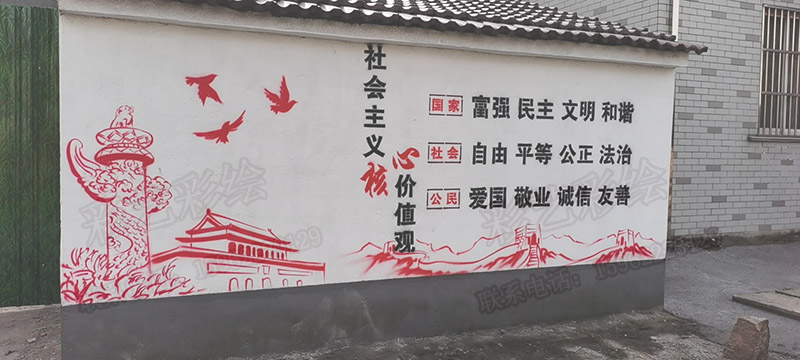 社会主义
核心价值观
国家 富强 民主 文明 和谐
社会 自由 平等 公正 法治
公民 爱国 敬业 诚信 友善
彩艺彩绘
彩艺彩绘
联系电话：